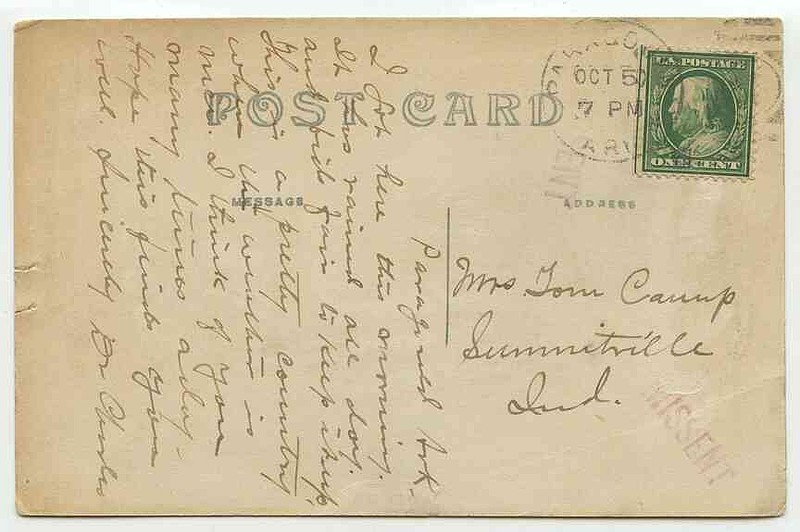 POST CARD
MESSAGE
ADDRESS
PARAGOULD
OCT 5
7 PM
ARK
U.S. POSTAGE
ONE CENT
Paragould Ark-
I got here this morning.
It has rained all day.
and bids fair to keep it up
This is a pretty country
when the weather is
nice. I think of you
many times a day-
Hope this finds you
well. Sincerely Dr Charles
Mrs. Tom Camp
Summitville
Ind.
MISSENT